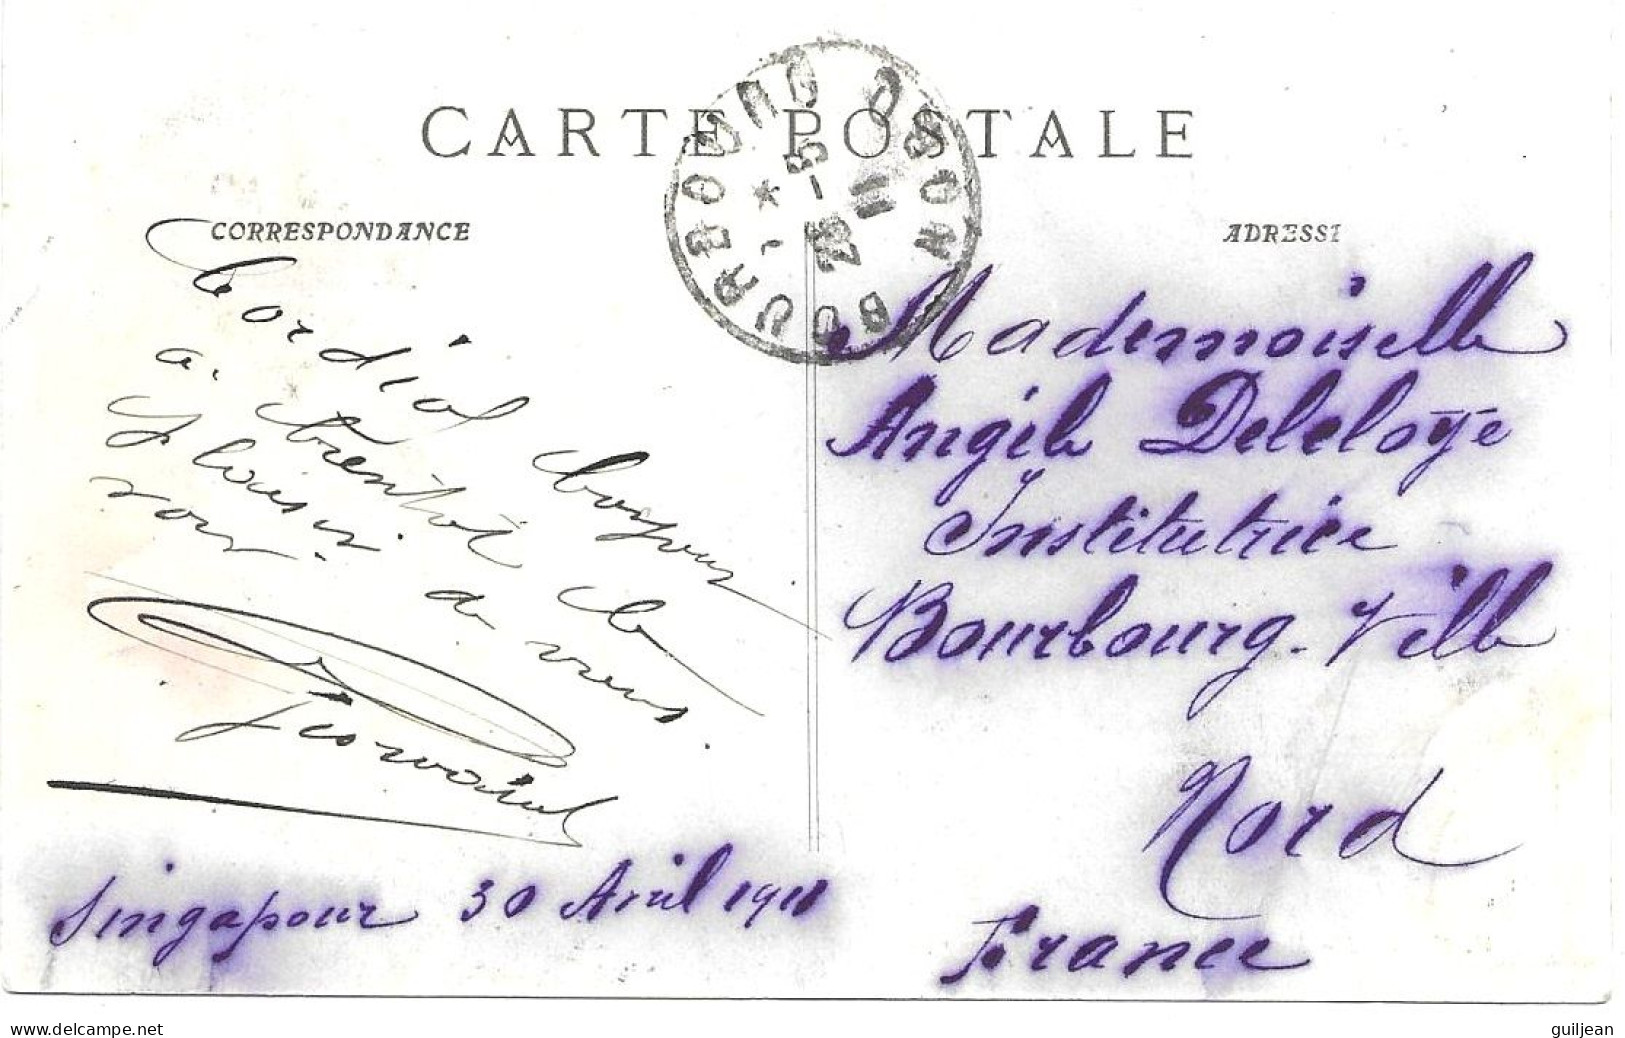 CARTE POSTALE
CORRESPONDANCE
ADRESSE
BOURBOURG NORD
* 5 - 
25
11
Cordial bonjour
a. bientot le
plaisir de vous
voir.
Singapour 30 Avril 1911
Mademoiselle
Angèle Deleloye
Institutrice
Bourbourg-Ville
Nord
France
www.delcampe.net
guiljean